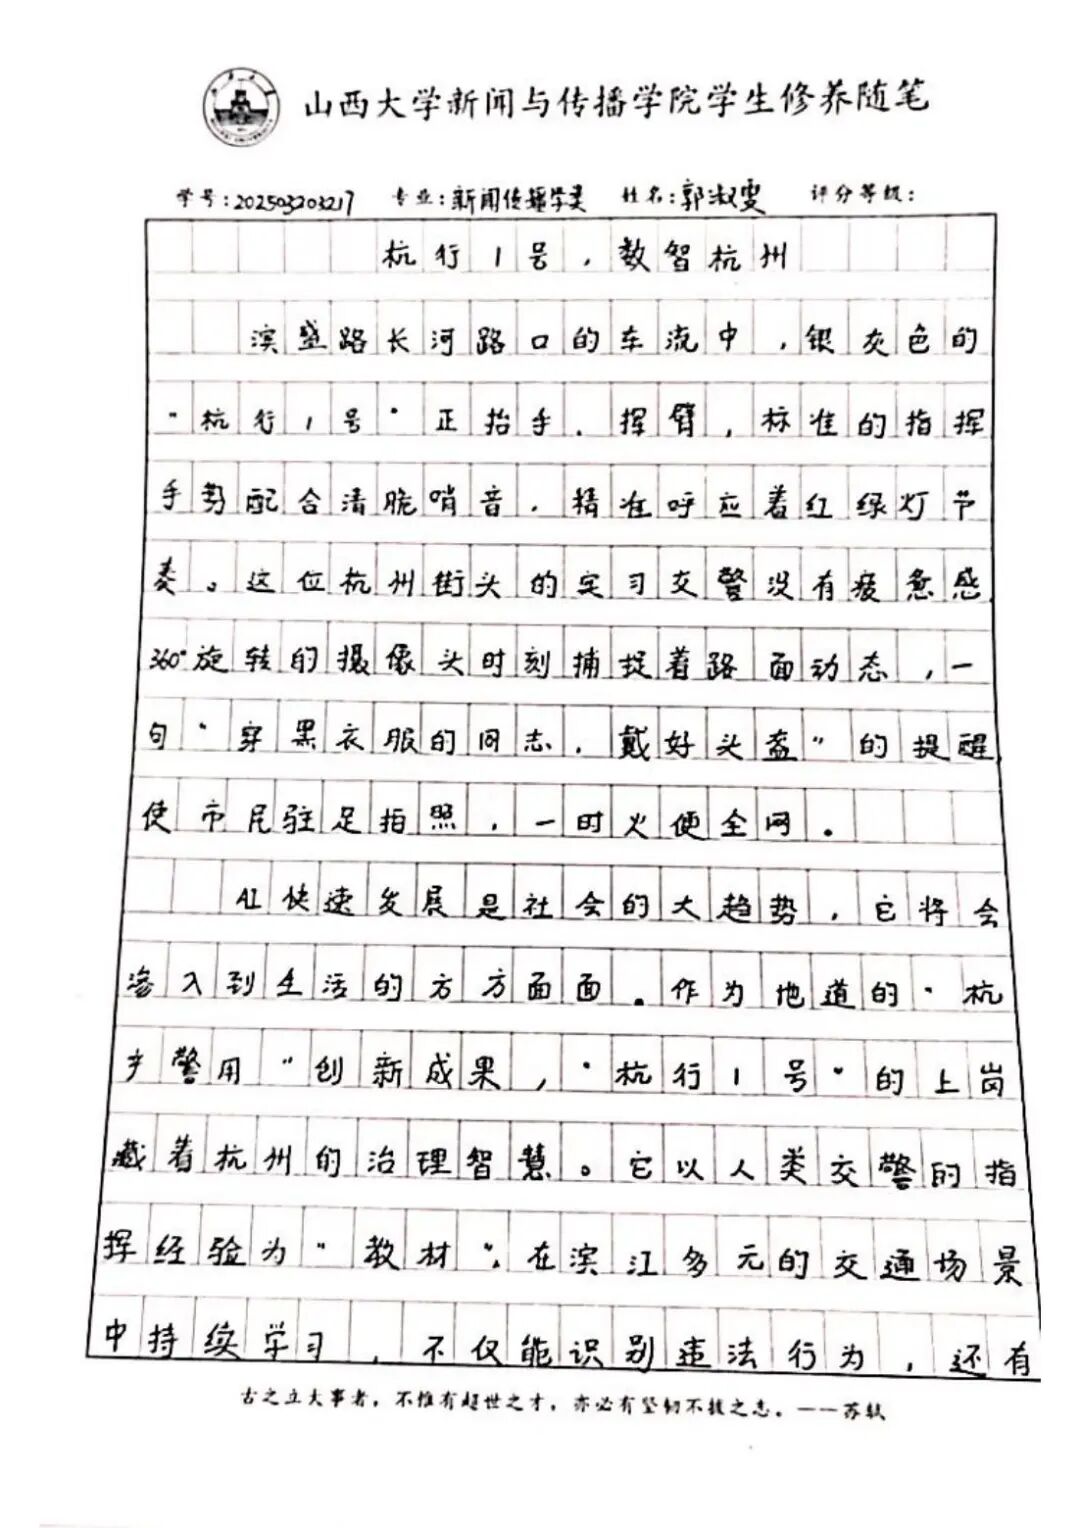 山西大学新闻与传播学院学生修养随笔
学号:202503203217 专业:新闻传播学类 姓名:郭淑雯 评分等级:
杭行1号,数智杭州
滨盛路长河路口的车流中,银灰色的
“杭行1号”正抬手、挥臂,标准的指挥
手势配合清脆哨音,精准呼应着红绿灯节
奏。这位杭州街头的实习交警没有疲惫感
360°旋转的摄像头时刻捕捉着路面动态,一
句“穿黑衣服的同志,戴好头盔”的提醒
使市民驻足拍照,一时火便全网。
AI快速发展是社会的大趋势,它将会
渗入到生活的方方面面。作为地道的“杭
产警用”创新成果,“杭行1号”的上岗
藏着杭州的治理智慧。它以人类交警的指
挥经验为“教材”,在滨江多元的交通场景
中持续学习,不仅能识别违法行为,还有
古之立大事者,不惟有超世之才,亦必有坚韧不拔之志。——苏轼